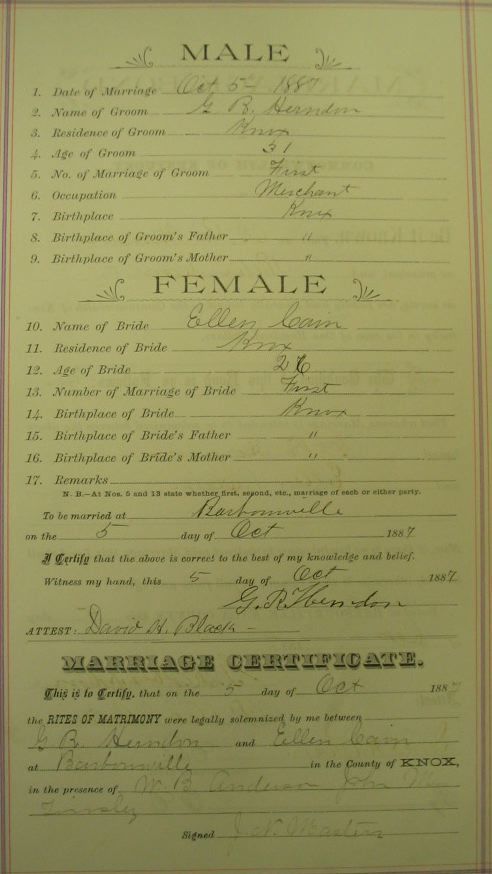 MALE
1. Date of Marriage Oct 5th 1887
2. Name of Groom G R. Herndon
3. Residence of Groom Knox
4. Age of Groom 31
5. No. of Marriage of Groom First
6. Occupation Merchant
7. Birthplace Knox
8. Birthplace of Groom's Father "
9. Birthplace of Groom's Mother "
FEMALE
10. Name of Bride Ellen Cain
11. Residence of Bride Knx
12. Age of Bride 26
13. Number of Marriage of Bride First
14. Birthplace of Bride Knox
15. Birthplace of Bride's Father "
16. Birthplace of Bride's Mother "
17. Remarks
N. B.—At Nos. 5 and 13 state whether first, second, etc., marriage of each or either party.
To be married at Barbourville
on the 5 day of Oct 1887
I Certify that the above is correct to the best of my knowledge and belief.
Witness my hand, this 5 day of Oct 1887
G. R. Herndon
ATTEST: David H. Black
MARRIAGE CERTIFICATE.
This is to Certify, that on the 5 day of Oct 1887
the RITES OF MATRIMONY were legally solemnized by me between
G R. Herndon and Ellen Cain
at Barbourville in the County of KNOX,
in the presence of W. B. Anderson John Mc
Tinsley
Signed J. N. Masters